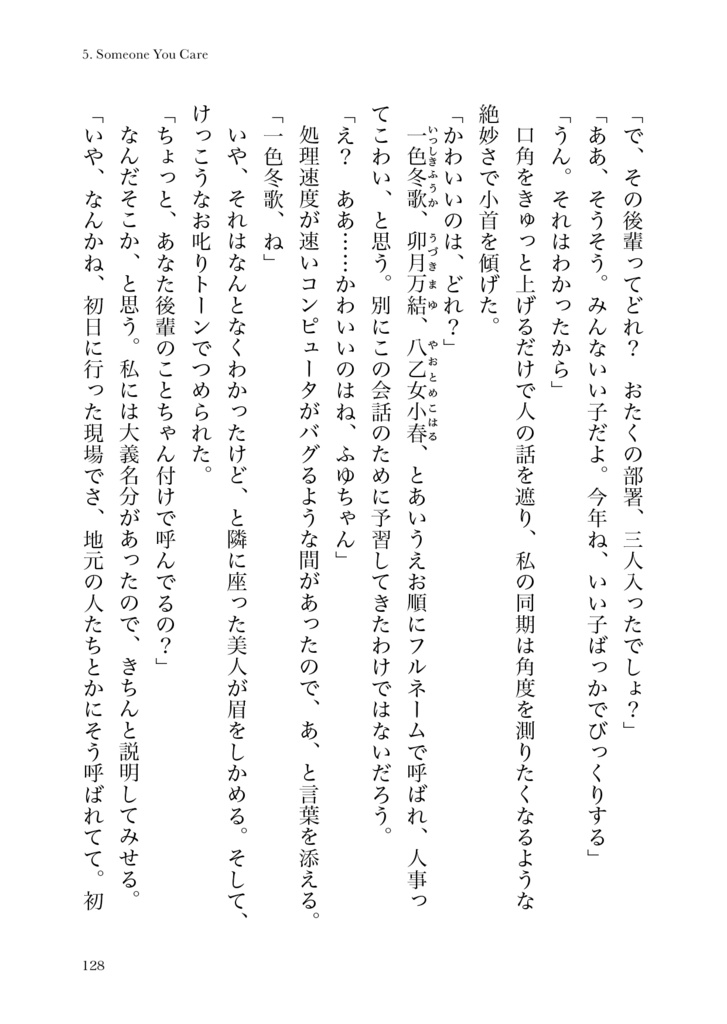 5. Someone You Care
「で、その後輩ってどれ？　おたくの部署、三人入ったでしょ？」
「ああ、そうそう。みんないい子だよ。今年ね、いい子ばっかでびっくりする」
「うん。それはわかったから」
　口角をきゅっと上げるだけで人の話を遮り、私の同期は角度を測りたくなるような
絶妙さで小首を傾げた。
「かわいいのは、どれ？」
　一色冬歌、卯月万結、八乙女小春、とあいうえお順にフルネームで呼ばれ、人事っ
いっしきふうか　うづきまゆ　やおとめこはる
てこわい、と思う。別にこの会話のために予習してきたわけではないだろう。
「え？　ああ……かわいいのはね、ふゆちゃん」
　処理速度が速いコンピュータがバグるような間があったので、あ、と言葉を添える。
「一色冬歌、ね」
　いや、それはなんとなくわかったけど、と隣に座った美人が眉をしかめる。そして、
けっこうなお叱りトーンでつめられた。
「ちょっと、あなた後輩のことちゃん付けで呼んでるの？」
　なんだそこか、と思う。私には大義名分があったので、きちんと説明してみせる。
「いや、なんかね、初日に行った現場でさ、地元の人たちとかにそう呼ばれてて。初
128